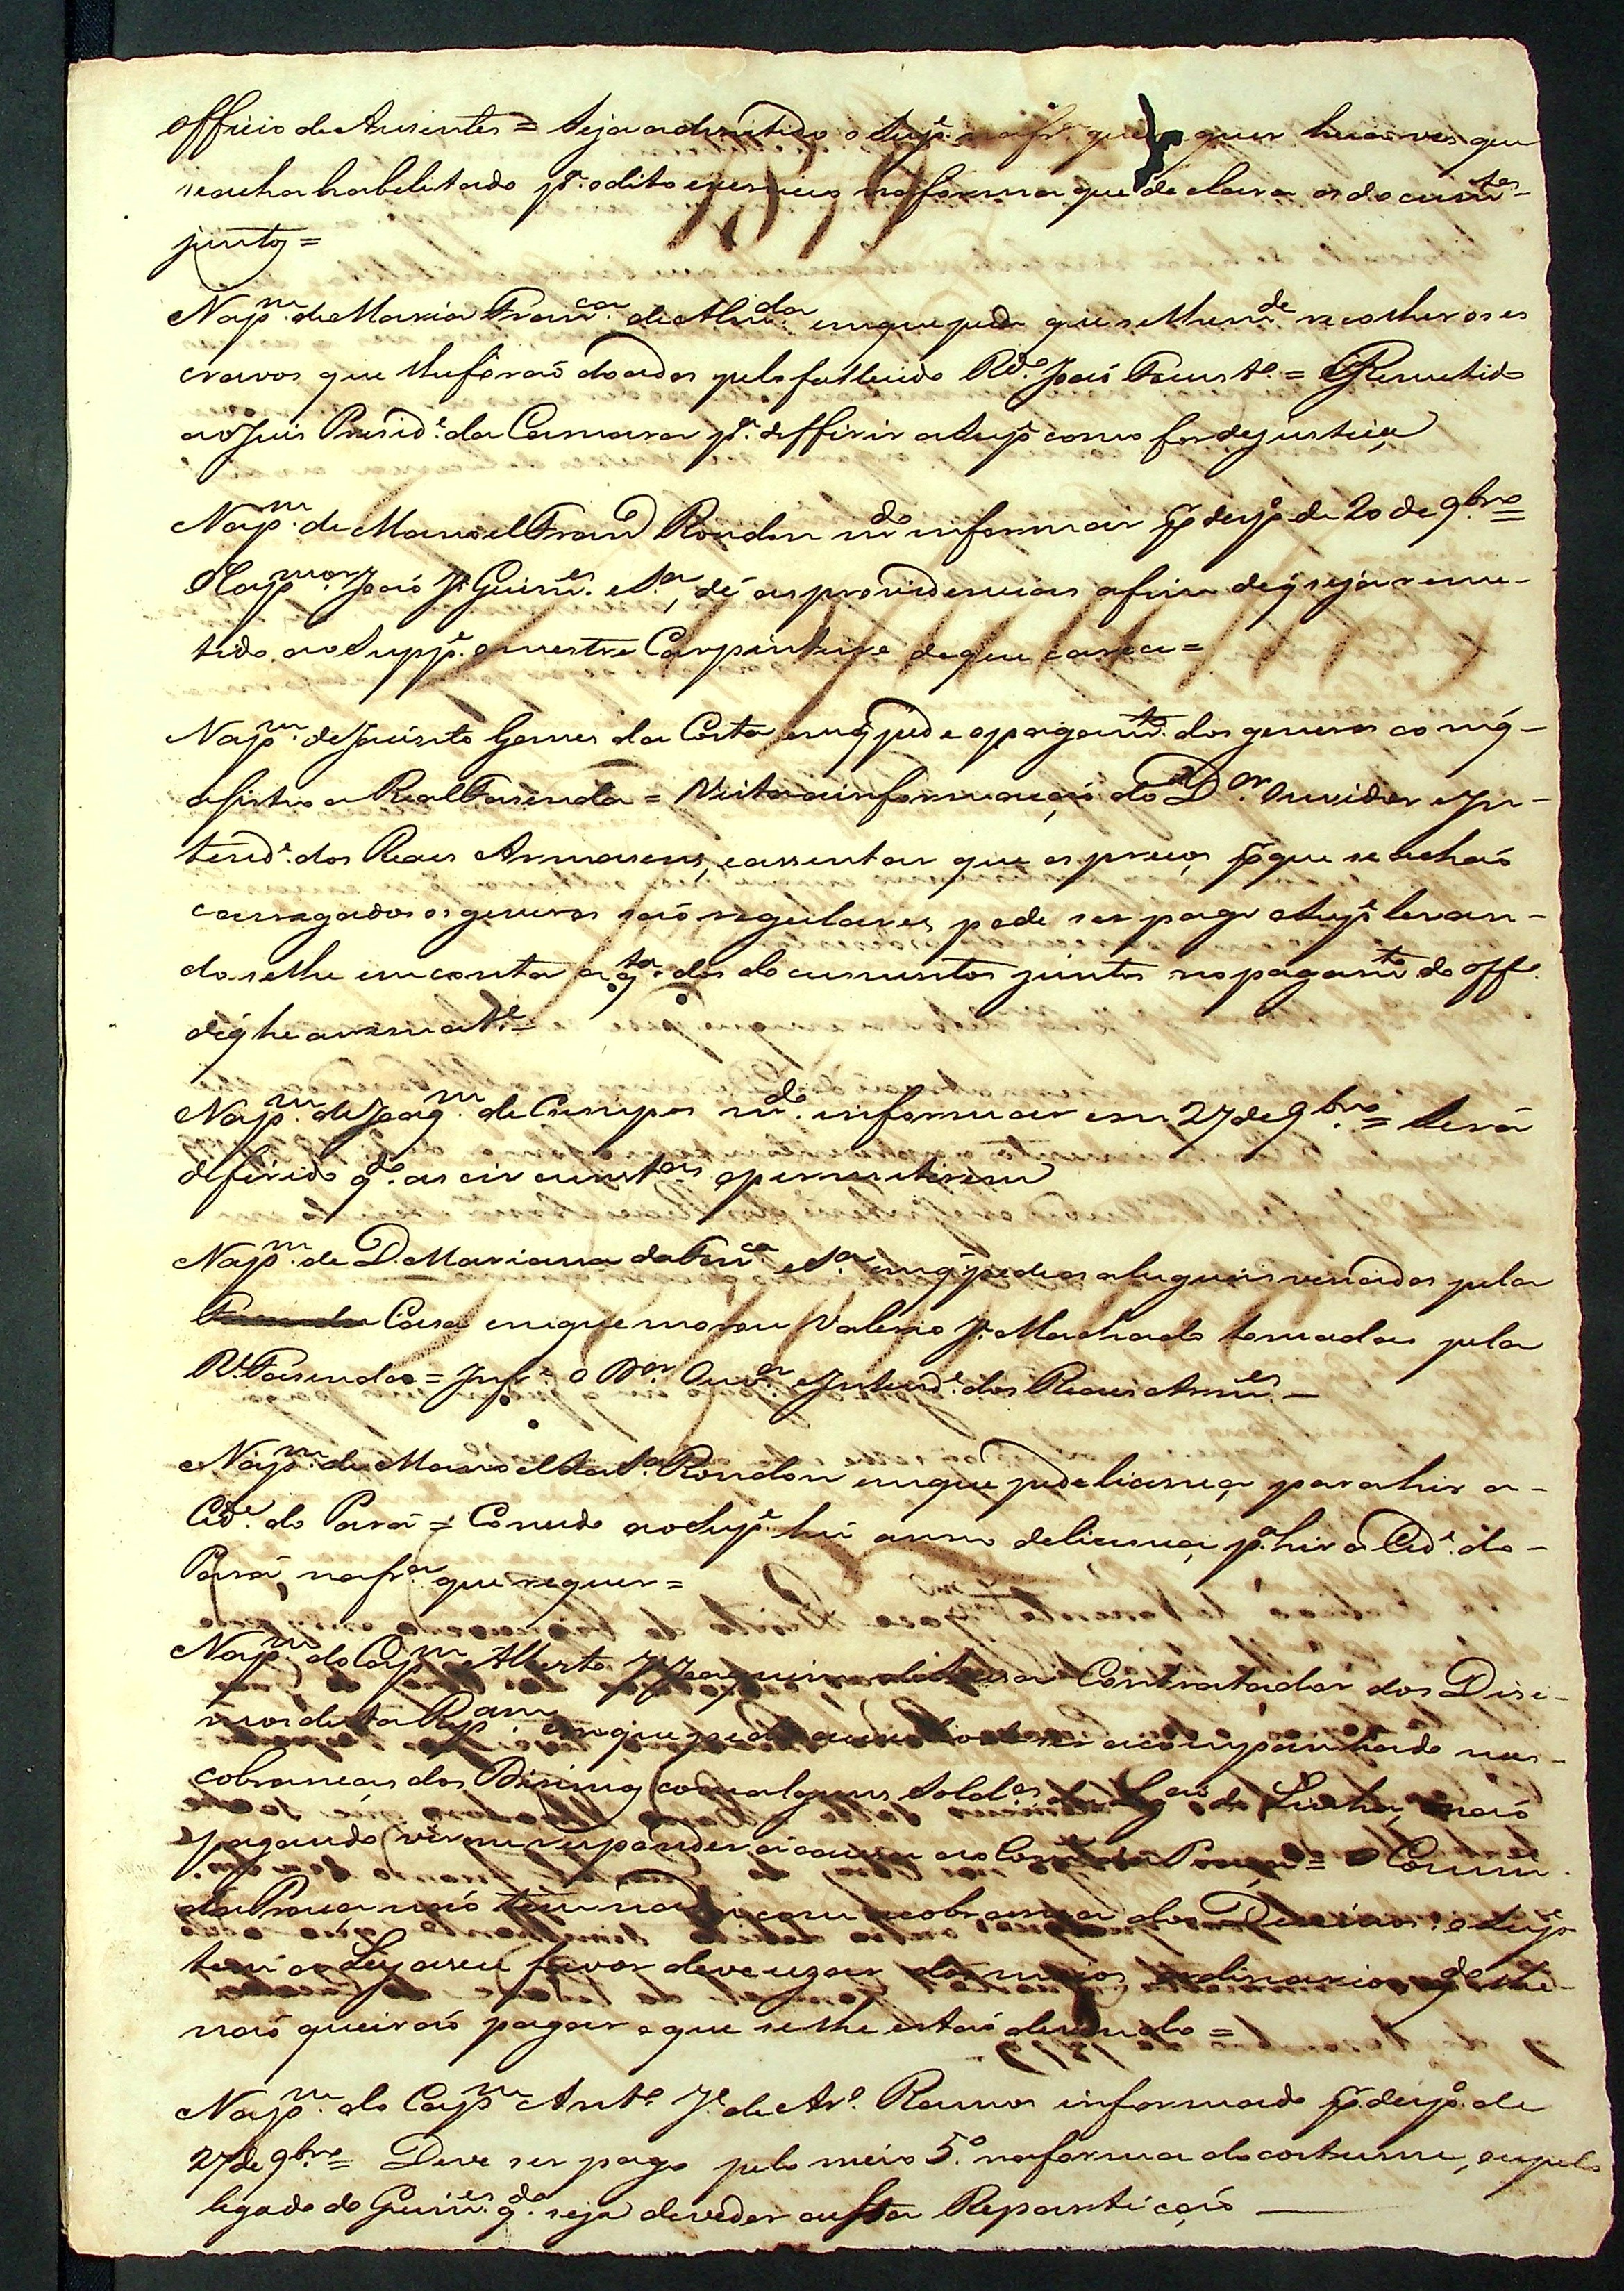 officio de Ausentes = Seja admitido o Supe. na fra. que quer huã ves que
se acha habelitado pa. o dito exercicio na forma que declara os documtes.
juntos =
Na pm. de Maria Franca. de Almda. em que pede que se lhe mde. recolher os es
cravos que lhe foraõ doados pelo falleicido Rdo. Joaõ Faustº. = Remetido
ao Juis Preside. da Camara pa. defferir a Supe. como for de justiça
Na pm. de Manoel Franco Rondon mdo. informar por despo. de 20 de 9bro =
O Capm. mor Joaõ Je. Guimes. e Sa., dê as providencias afim de q seja reme-
tido ao Suppe. o mestre Carpinteiro de que caresse =
Na pm. de Jacinto Gomes da Costa em q pede o pagamto. dos generos com q
asistio a Real Fasenda = Vista a informaçaõ do Dor. Ouvidor e In-
tende. dos Reaes Armasens, e assentar que os preços por que se achaõ
carregados os generos saõ regulares pode ser pago o Supe. levan-
do se lhe em conta a qta. dos documentos juntos no pagamto. do offo.
de q he arematte. =
Na pm. de Joaqm. de Campos mdo. informar em 27 de 9bro = Será
deferido qdo. as circunstas. o permitirem
Na pm. de D. Mariana da Fonca. e Sa. em q pede os alugueis vencidos pela
Casa em que morou Valerio Je. Machado tomadas pela
Rl. Fasenda = Infe. o Dor. Ouvor. e Intende. dos Reaes Armes. —
Na pm. de Manoel da Sa. Rondon em que pede licença para hir a
Cide. do Pará = Concedo ao Supe. hũ anno de licença pa. hir a Cide. do
Pará, na fra. que requer =
Na pm. do Capm. Alberto Je. Joaquim Contratador dos Disi-
mos desta Capnia. em que pede ser acompanhado nas
cobranças dos Disimos com alguns Soldos. da Legiaõ de Linha, e naõ
pagando virem responder a causa ao Come. da Praça = O Come.
da Praça naõ tem nada com a cobrança dos Dizimos: o Supe.
tem as Leys a seu favor deve uzar dos meios ordinarios qdo. lhe
naõ queiraõ pagar o que se lhe estaõ devendo =
Na pm. do Capm. Anto. Je. de Aro. Ramos informado por despo. de
27 de 9bro = Deve ser pago pelo meio 5º. na forma do costume, ou pelo
legado do Guimes. qdo. seja devedor a esta Repartiçaõ —